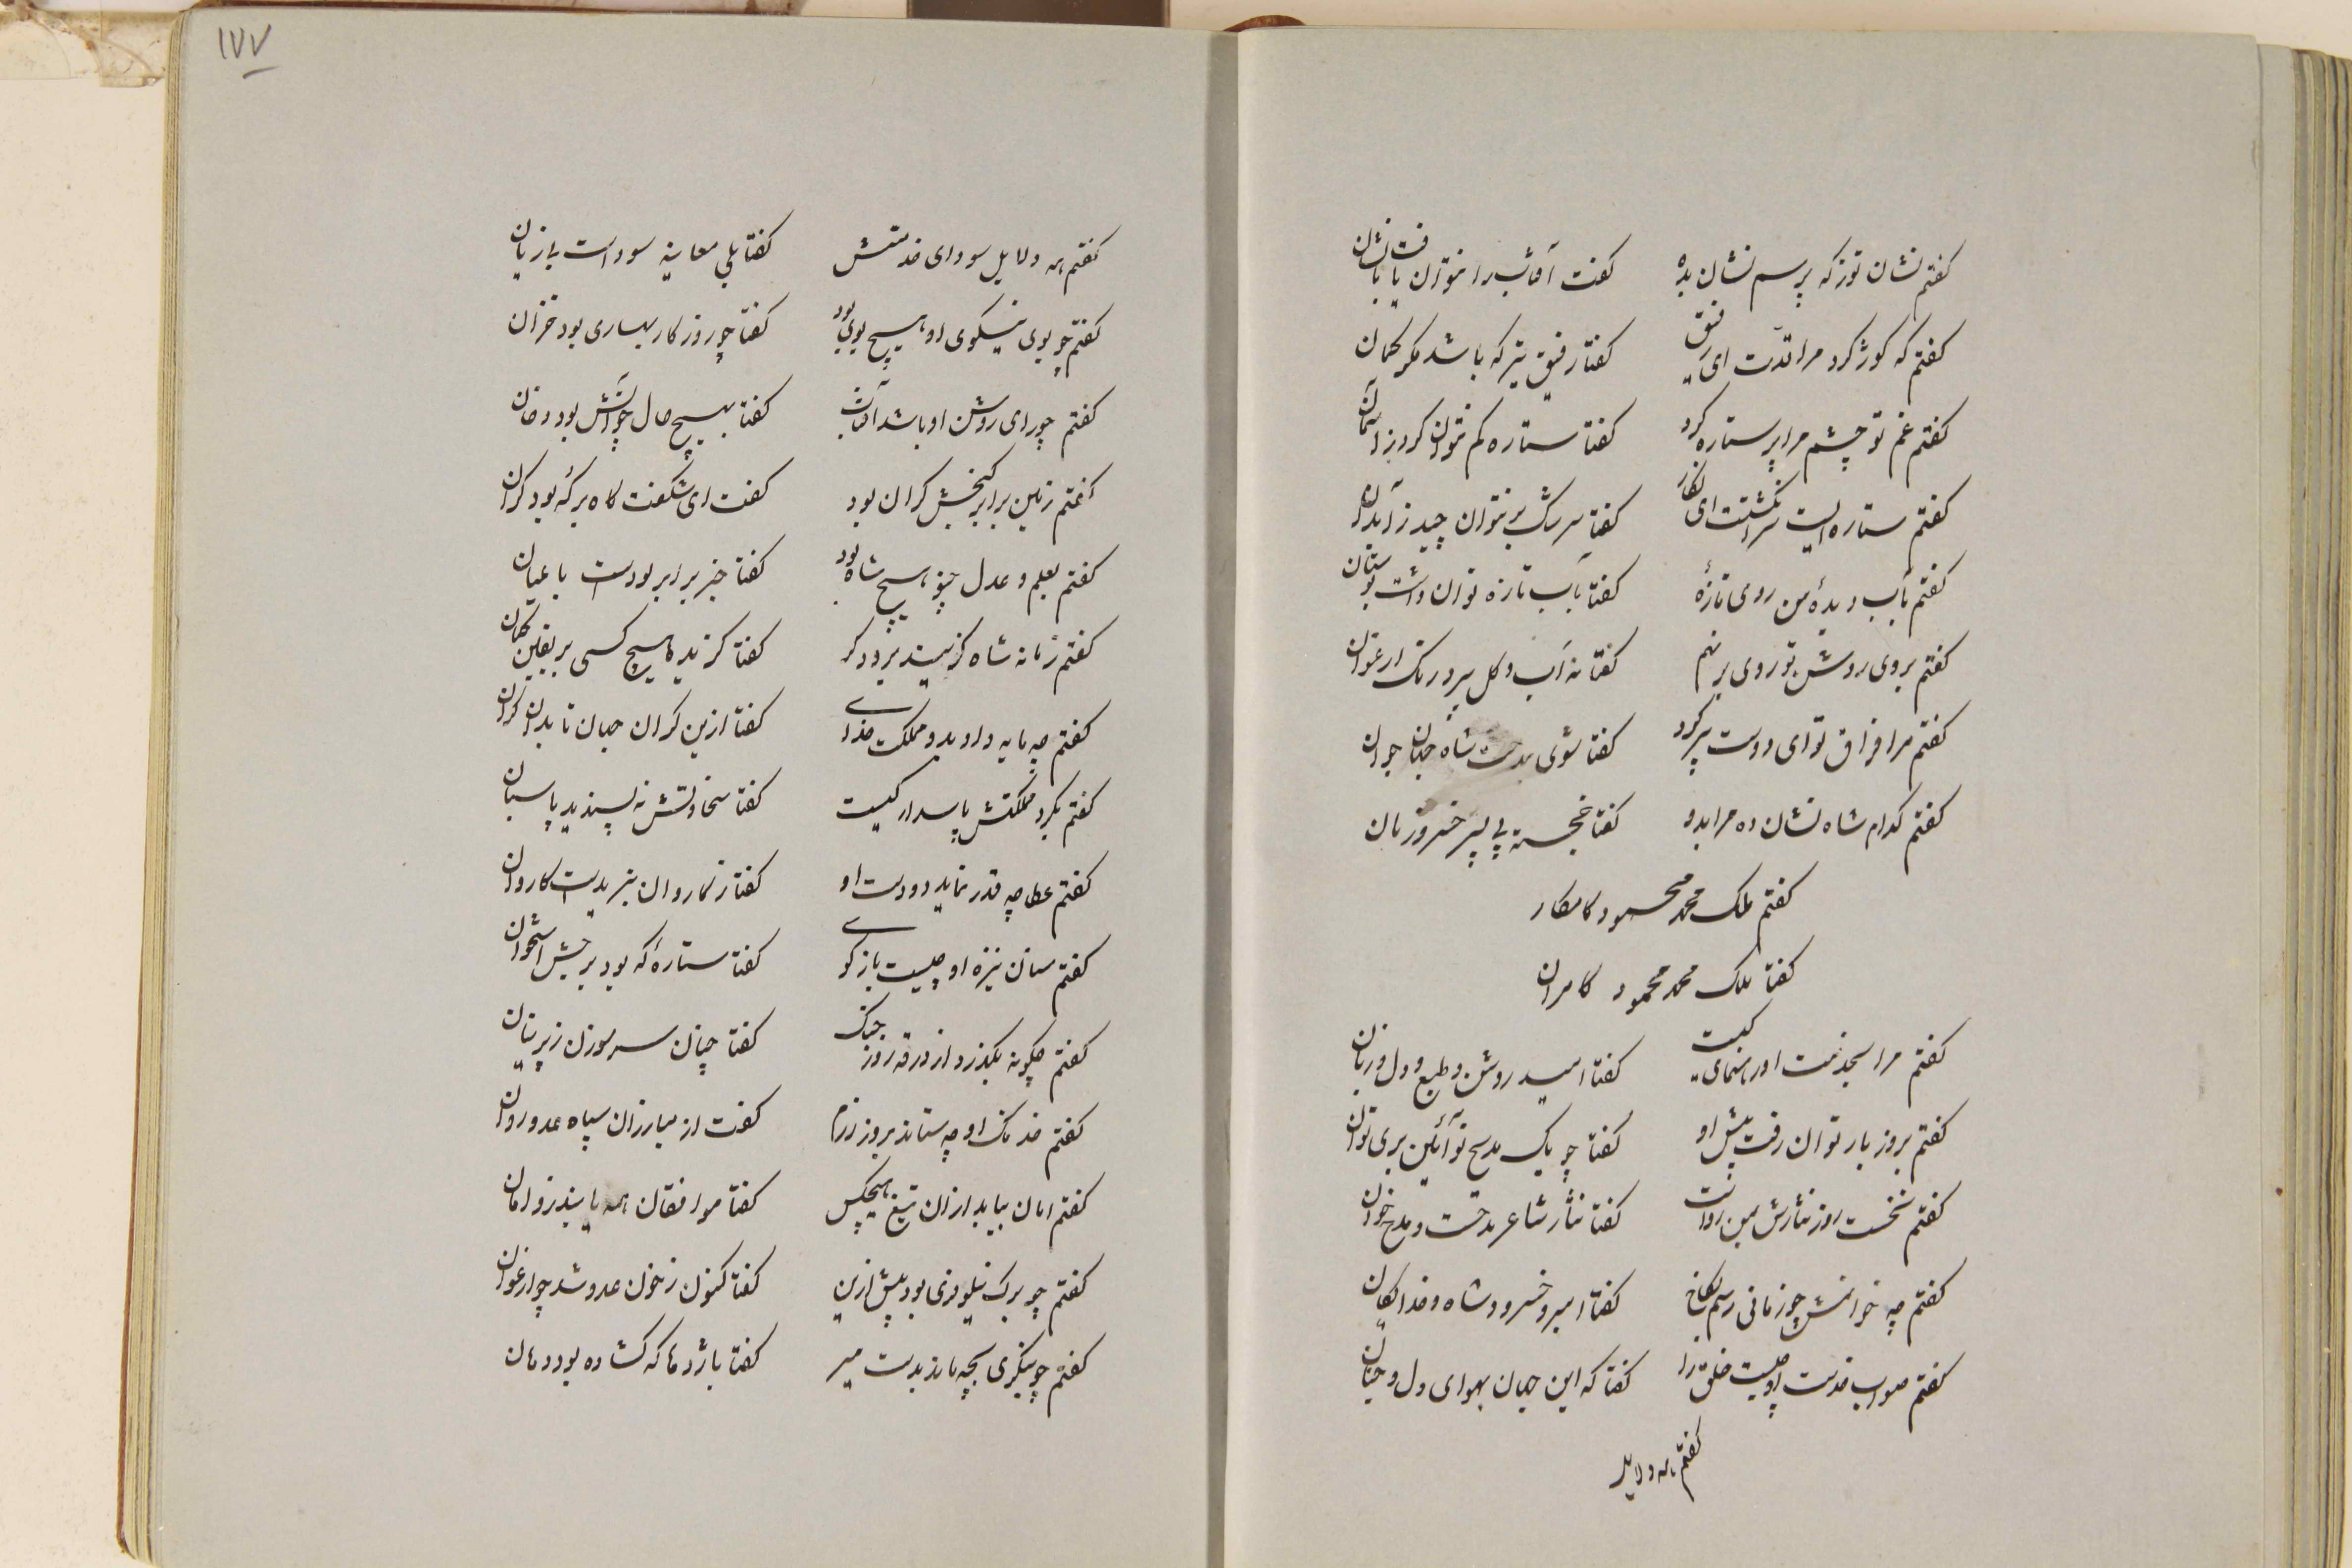 کفتم نشان توز که پرسم نشان بده کفت آفتاب را نتوان یافت بانشان
کفتم که کوژ کرد مرا قدت ای رفیق کفتا رفیق تیر که باشد مکر کمان
کفتم غم تو چشم مرا پر ستاره کرد کفتا ستاره کم نتوان کرد ز آسمان
کفتم ستاره نیست سرشکست ای نکار کفتا سرشک بر نتوان چید ز آبدان
کفتم بآب دیدهٔ من روی تازهٔ کفتا بآب تازه توان داشت بوستان
کفتم بروی روشن تو روی بر نهم کفتا نه آب و کل ببرد رنک ارغوان
کفتم مرا فراق تو ای دوست پیر کرد کفتا شوی بدست شاه جهان جوان
کفتم کدام شاه نشان ده مرا بدو کفتا خجسته پی پسر خسرو زمان
کفتم ملک محمد محمود کامکار
کفتا ملک محمد محمود کامران
کفتم مرا بخدمت او رهنمای کیست کفتا امید روشن و طبع و دل و زبان
کفتم بروز بار توان رفت پیش او کفتا چو یک مدیح نو آئین بری توان
کفتم نخست روز نثارش بمن رواست کفتا نثار شاعر مدحست و مدح خوان
کفتم چه خوانمش چو زمانی رسم بکاخ کفتا امیر و خسرو و شاه و خدایکان
کفتم صواب خدمت او چیست خلق را کفتا که این جهان بهوای دل و جنان
کفتم همه دلایل
۱۷۷
کفتم همه دلایل سودای خدمتش کفتا بلی معاینه سود است بی زیان
کفتم چو بوی نیکوی او هیچ بوی بود کفتا چو روزکار بهاری بود خزان
کفتم چو رای روشن او باشد آفتاب کفتا بهیچ حال چو آتش بود دخان
کفتم زمین برابر کنجش کران بود کفت ای شکفت کاه بر که بود کران
کفتم بعلم و عدل چنو هیچ شاه بود کفتا خبر برابر بودست با عیان
کفتم زمانه شاه کزیند برو دکر کفتا کزیده هیچ کسی بر یقین کمان
کفتم چه مایه داد بدو مملکت خدای کفتا ازین کران جهان تا بدان کران
کفتم بکرد مملکتش پاسدار کیست کفتا سخاوتش نه پسندید پاسبان
کفتم عطا چه قدر نماید دو دست او کفتا ز کاروان نبریدست کاروان
کفتم سنان نیزهٔ او چیست باز کوی کفتا ستارهٔ که بود برجش استخوان
کفتم چکونه بکذرد از درقه روز جنک کفتا چنان سر سوزن ز پرنیان
کفتم خدنک او چه ستاند بروز رزم کفت از مبارزان سپاه عدو روان
کفتم امان بیابد از ان تیغ هیچکس کفتا موافقان همه یابند زو امان
کفتم چو برک نیلوفری بود پیش ازین کفتا کنون ز خون عدو شد چو ارغوان
کفتم چو بنکری بچه ماند بدست میر کفتا باژدها که کشاده بود دهان